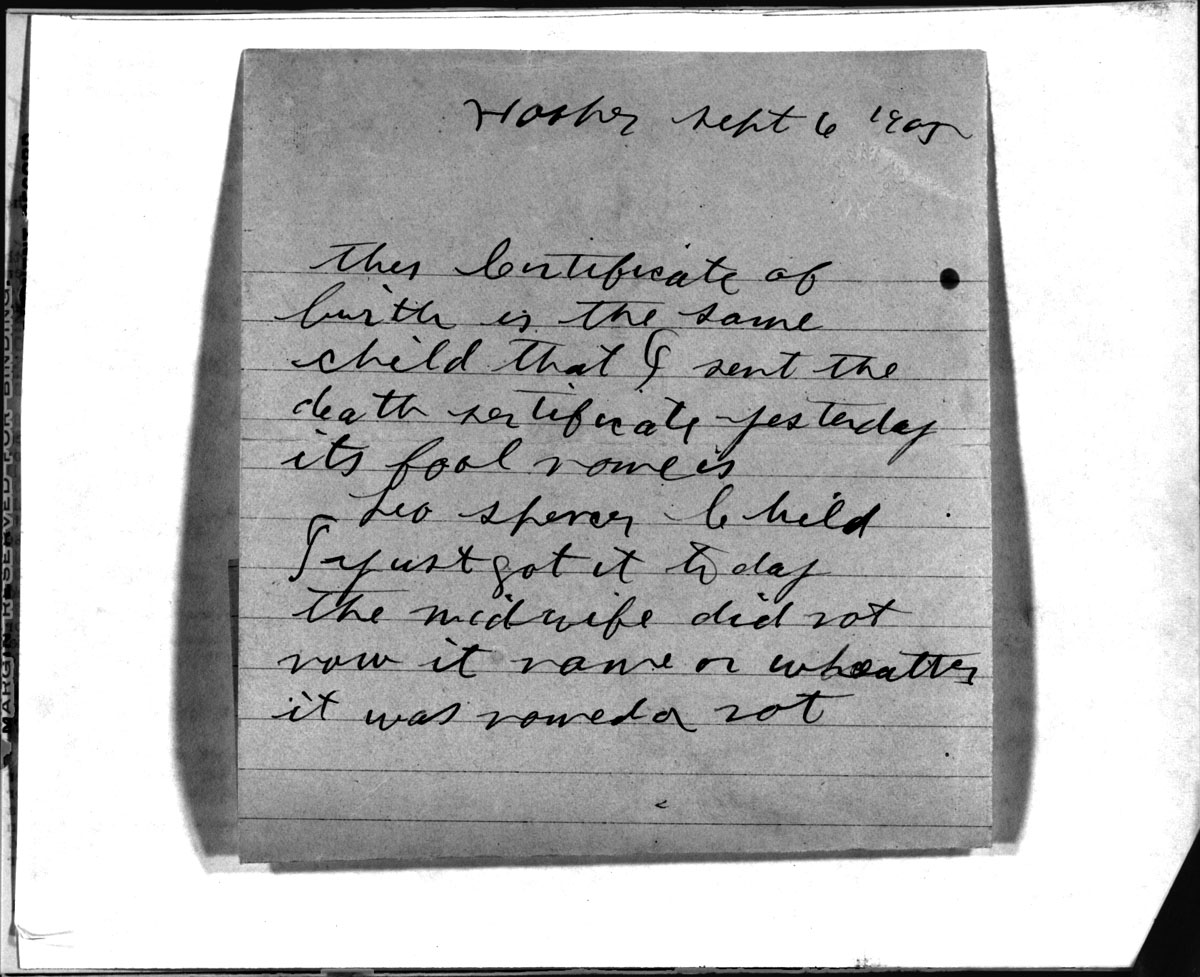 Hosher sept 6 1905
this Certificate of
burth is the same
child that I sent the
death sertificate yesterday
its fool name is
Leo spencer Child
I yust got it today
the midwife did not
now it name or wheatter
it was named or not
MARGIN RESERVED FOR BINDING.